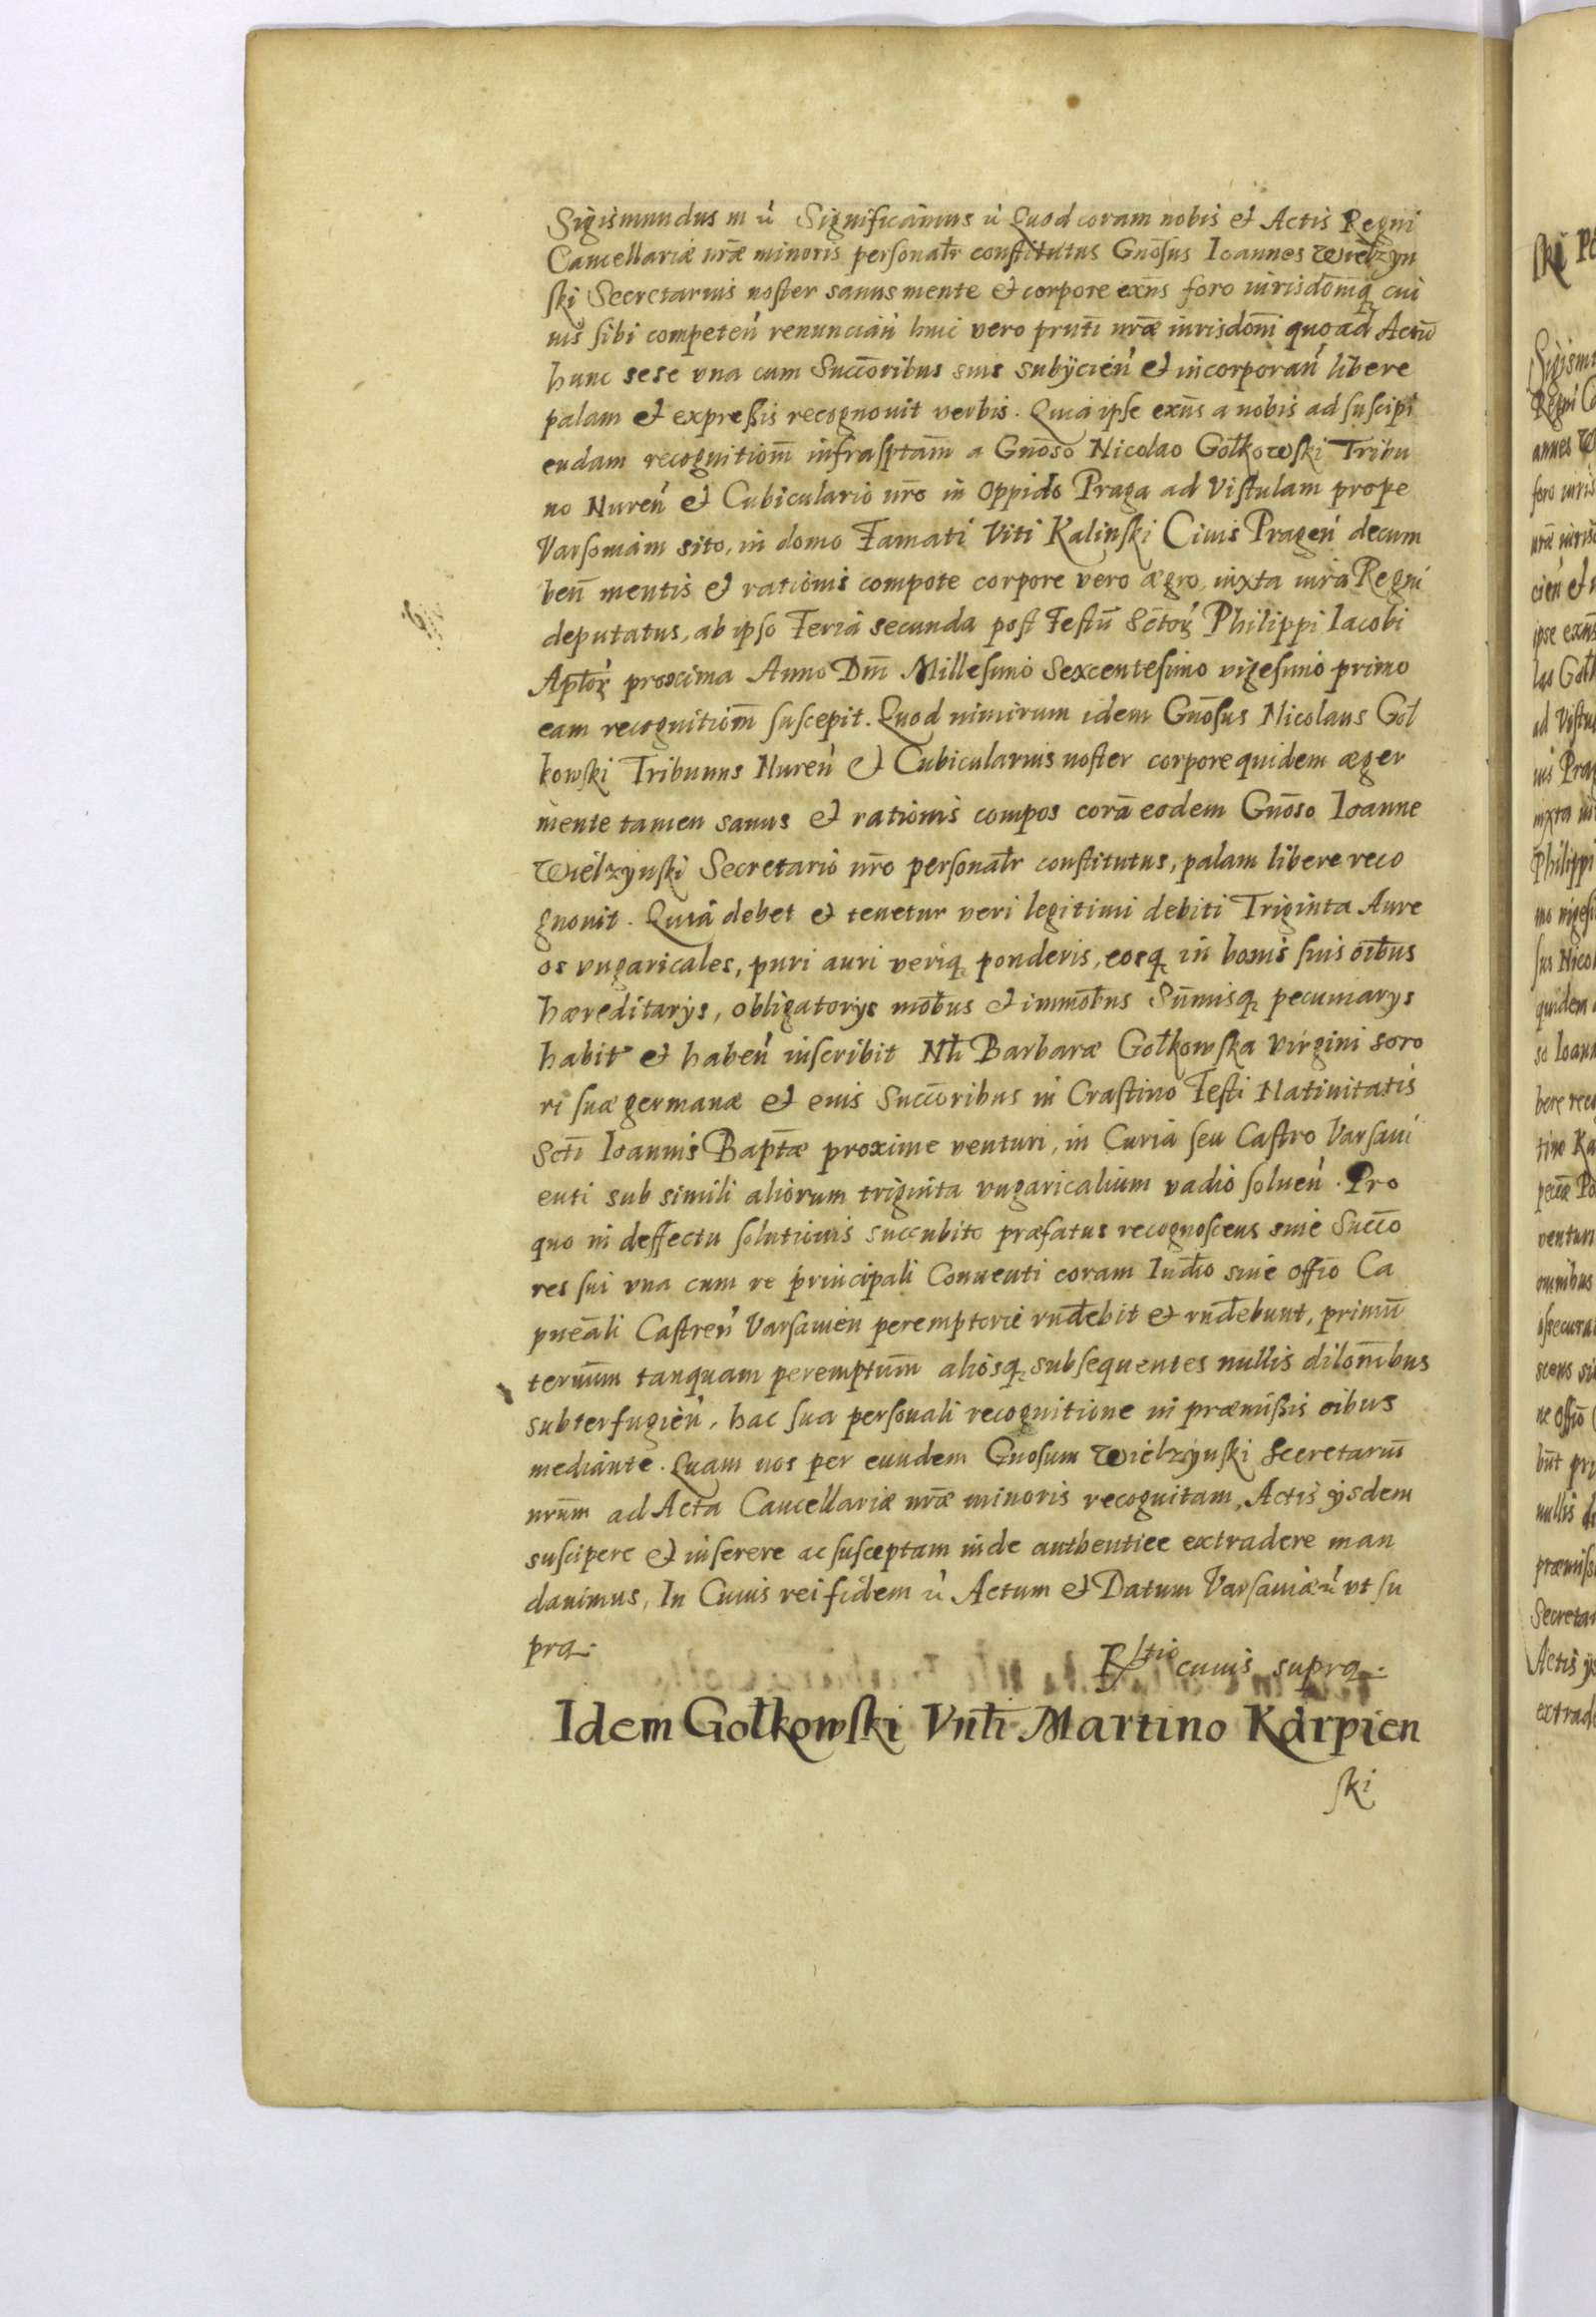 Sigismundus III ń Significamus ń Quod coram nobis et Actis Regni
Cancellariæ nræ minoris personalr constitutus Gnosus Ioannes Wielzyn
ski Secretarius noster sanus mente et corpore exns foro iurisdomq cui
us sibi competeń renunciań huic vero prnti nræ iurisdoni quoad Actū
hunc sese vna cum Succoribus suis subÿcień et incorporań libere
palam et expreßis recognouit verbis. Quia ipse exns a nobis ad suscipi
endam recognitiom̄ infrasptam̄ a Gnōso Nicolao Gołkowski Tribu
no Nureń et Cubiculario nrō in oppido Praga ad Vistulam prope
Varsouiam sito, in domo Famati Viti Kalinski Ciuis Prageń decum
ben̄ mentis et rationis compote corpore vero ægro iuxta iura Regni
deputatus, ab ipso Feria secunda post Festū Sctoꝝ Philippi Iacobi
Aptloꝝ proxima Anno Dm̄ Millesimo Sexcentesimo vigesimo primo
eam recognitiom̄ suscepit. Quod nimirum idem Gnōsus Nicolaus Goł
kowski Tribunus Nureń et Cubicularius noster corpore quidem æger
mente tamen sanus et rationis compos corā eodem Gnōso Ioanne
Wielzynski Secretario nrō personalr constitutus, palam libere reco
gnouit. Quia debet et tenetur veri legitimi debiti Triginta Aure
os vngaricales, puri auri veriq ponderis, eosq in bonis suis oibus
hæreditarÿs, obligatorÿs mobus et immobus Sum̄isq pecuniarÿs
habit et habeń inscribit Nli Barbaræ Gołkowska virgini soro
ri suæ germanæ et eius Succoribus in Crastino Festi Natiuitatis
Scti Ioannis Baptæ proxime venturi, in Curia seu Castro Varsaui
enti sub simili aliorum triginta vngaricalium vadio solueń. Pro
quo in deffectu solutionis succubito præfatus recognoscens siue Succo
res sui vna cum re principali Conuenti coram Iudio siue offio Ca
pneali Castreń Varsauień peremptorie rndebit et rndebunt, primū
termum tanquam peremptum̄ aliosq subsequentes nullis dilonibus
subterfugień, hac sua personali recognitione in præmißis oibus
mediante. Quam nos per eundem Gnosum Wielzynski Secretariū
nrūm ad Acta Cancellariæ nræ minoris recognitam, Actis ÿsdem
suscipere et inserere ac susceptam inde authentice extradere man
dauimus, In Cuius rei fidem ń Actum et Datum Varsauiæ ń vt su
pra.
Rltio cuius supra.
Idem Gołkowski Vnłi Martino Karpien
ski